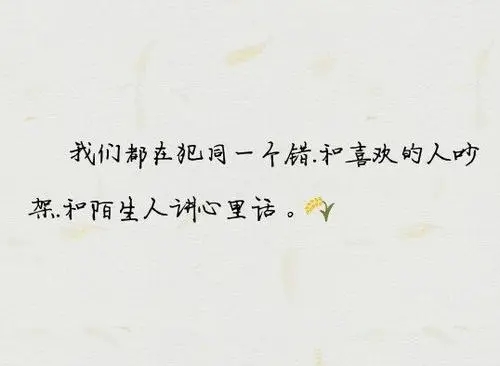 我们都在犯同一个错.和喜欢的人吵
架.和陌生人讲心里话。🌾